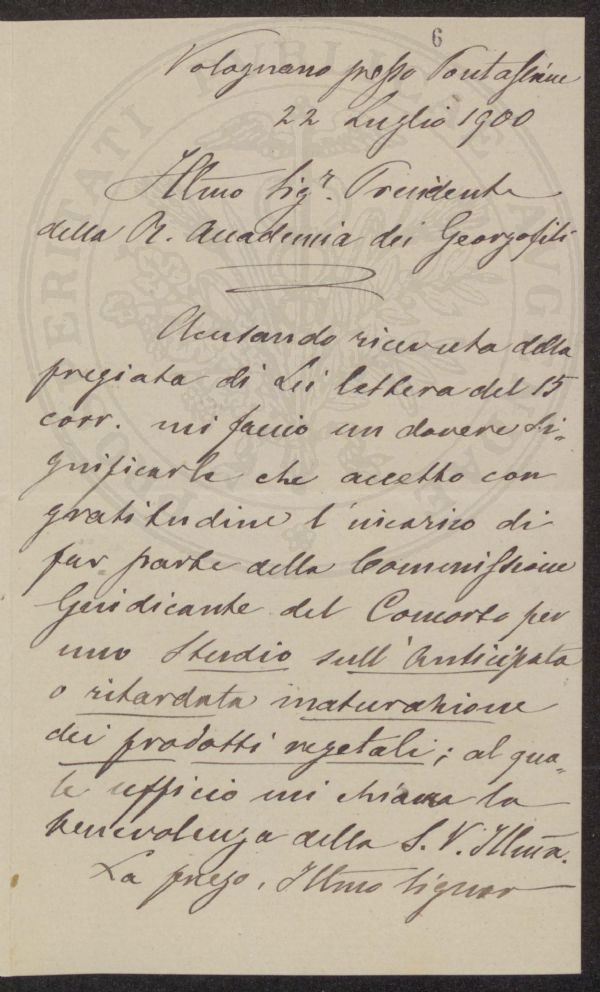 6
Volognano presso Pontassieve
22 Luglio 1900
Illmo Sigr. Presidente
della R. Accademia dei Georgofili
Accusando ricevuta della
pregiata di Lei lettera del 15
corr. mi faccio un dovere si-
gnificarle che accetto con
gratitudine l'incarico di
far parte della Commissione
Giudicante del Concorso per
uno Studio sull'Anticipata
o ritardata maturazione
dei prodotti vegetali; al qua-
le ufficio mi chiama la
benevolenza della S. V. Illma.
La prego, Illmo Signor